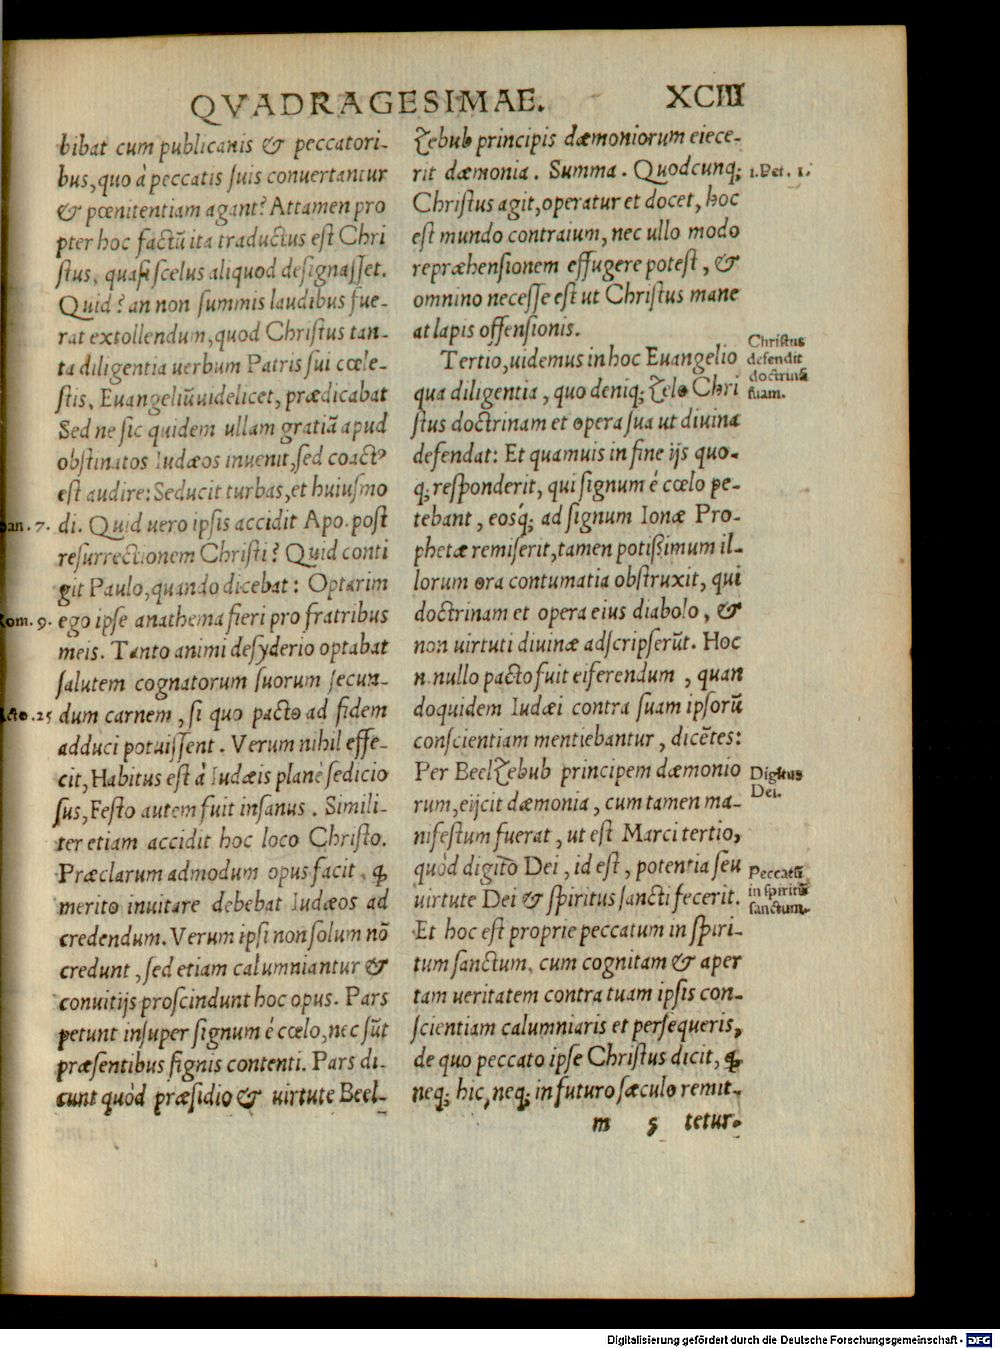 QVADRAGESIMAE. XCIII
bibat cum publicanis & peccatori-
bus, quo à peccatis suis conuertantur
& pœnitentiam agant? Attamen pro
pter hoc factū ita traductus est Chri
stus, quasi scelus aliquod designasset.
Quid? an non summis laudibus fue-
rat extollendum, quod Christus tan-
ta diligentia uerbum Patris sui cœle-
stis, Euangeliū uidelicet, prædicabat
Sed ne sic quidem ullam gratiā apud
obstinatos Iudæos inuenit, sed coactꝰ
est audire: Seducit turbas, et huiusmo
di. Quid uero ipsis accidit Apo. post
resurrectionem Christi? Quid conti
git Paulo, quando dicebat: Optarim
ego ipse anathema fieri pro fratribus
meis. Tanto animi desyderio optabat
salutem cognatorum suorum secun-
dum carnem, si quo pacto ad fidem
adduci potuissent. Verum nihil effe-
cit, Habitus est à Iudæis planè sedicio
sus, Festo autem fuit insanus. Simili-
ter etiam accidit hoc loco Christo.
Præclarum admodum opus facit, ꝙ
merito inuitare debebat Iudæos ad
credendum. Verum ipsi non solum nō
credunt, sed etiam calumniantur &
conuitijs proscindunt hoc opus. Pars
petunt insuper signum é cœlo, nec sūt
præsentibus signis contenti. Pars di-
cunt quòd præsidio & uirtute Beel-
an. 7.
om. 9.
Acto. 25
zebub principis dæmoniorum eiece-
rit dæmonia. Summa. Quodcunq;
Christus agit, operatur et docet, hoc
est mundo contraium, nec ullo modo
repræhensionem effugere potest, &
omnino necesse est ut Christus mane
at lapis offensionis.
Tertio, uidemus in hoc Euangelio
qua diligentia, quo deniq; zelo Chri
stus doctrinam et opera sua ut diuina
defendat: Et quamuis in fine ijs quo-
q; responderit, qui signum é cœlo pe-
tebant, eosq́; ad signum Ionæ Pro-
phetæ remiserit, tamen potißimum il-
lorum ora contumatia obstruxit, qui
doctrinam et opera eius diabolo, &
non uirtuti diuinæ adscripserūt. Hoc
n. nullo pacto fuit eiferendum, quan
doquidem Iudæi contra suam ipsorū
conscientiam mentiebantur, dicētes:
Per Beelzebub principem dæmonio
rum, eijcit dæmonia, cum tamen ma-
nifestum fuerat, ut est Marci tertio,
quòd digito Dei, id est, potentia seu
uirtute Dei & spiritus sancti fecerit.
Et hoc est proprie peccatum in spiri-
tum sanctum, cum cognitam & aper
tam ueritatem contra tuam ipsis con-
scientiam calumniaris et persequeris,
de quo peccato ipse Christus dicit, ꝙ
neq; hic, neq; in futuro sæculo remit-
1. Pet. 1.
Christus
defendit
doctrinā
suam.
Digitus
Dei.
Peccatū
in spiritū
sanctum.
m 5 tetur.
Digitalisierung gefördert durch die Deutsche Forschungsgemeinschaft - DFG